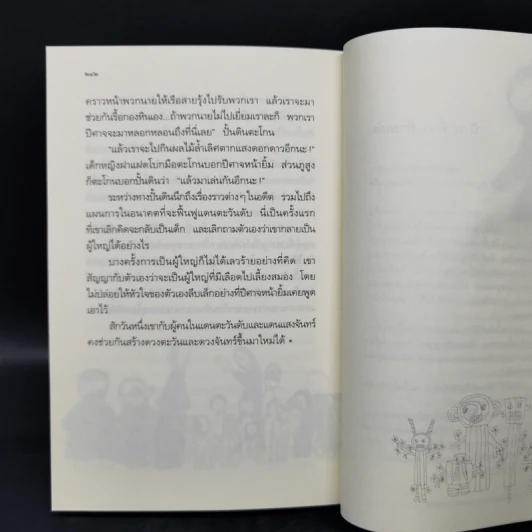 ๒๔๒
คราวหน้าพวกนายให้เรือสายรุ้งไปรับพวกเรา แล้วเราจะมา
ช่วยกันรื้อกองหินเอง...ถ้าพวกนายไม่ไปเยี่ยมเราละก็ พวกเรา
ปีศาจจะมาหลอกหลอนถึงที่นี่เลย" ปั้นดินตะโกน
"แล้วเราจะไปกินผลไม้ล้ำเลิศตากแสงดอกดาวอีกนะ!"
เด็กหญิงฝาแฝดโบกมือตะโกนบอกปีศาจหน้ายิ้ม ส่วนภูสูง
ก็ตะโกนบอกปั้นดินว่า "แล้วมาเล่นกันอีกนะ!"
ระหว่างทางปั้นดินนึกถึงเรื่องราวต่างๆ ในอดีต รวมไปถึง
แผนการในอนาคตที่จะฟื้นฟูแดนตะวันดับ นี่เป็นครั้งแรก
ที่เขาเลิกคิดจะกลับเป็นเด็ก และเลิกถามตัวเองว่าเขากลายเป็น
ผู้ใหญ่ได้อย่างไร
บางครั้งการเป็นผู้ใหญ่ก็ไม่ได้เลวร้ายอย่างที่คิด เขา
สัญญากับตัวเองว่าจะเป็นผู้ใหญ่ที่มีเลือดไปเลี้ยงสมอง โดย
ไม่ปล่อยให้หัวใจของตัวเองลีบเล็กอย่างที่ปีศาจหน้ายิ้มเคยพูด
เอาไว้
สักวันหนึ่งเขากับผู้คนในแดนตะวันดับและแดนแสงจันทร์
คงช่วยกันสร้างดวงตะวันและดวงจันทร์ขึ้นมาใหม่ได้ •